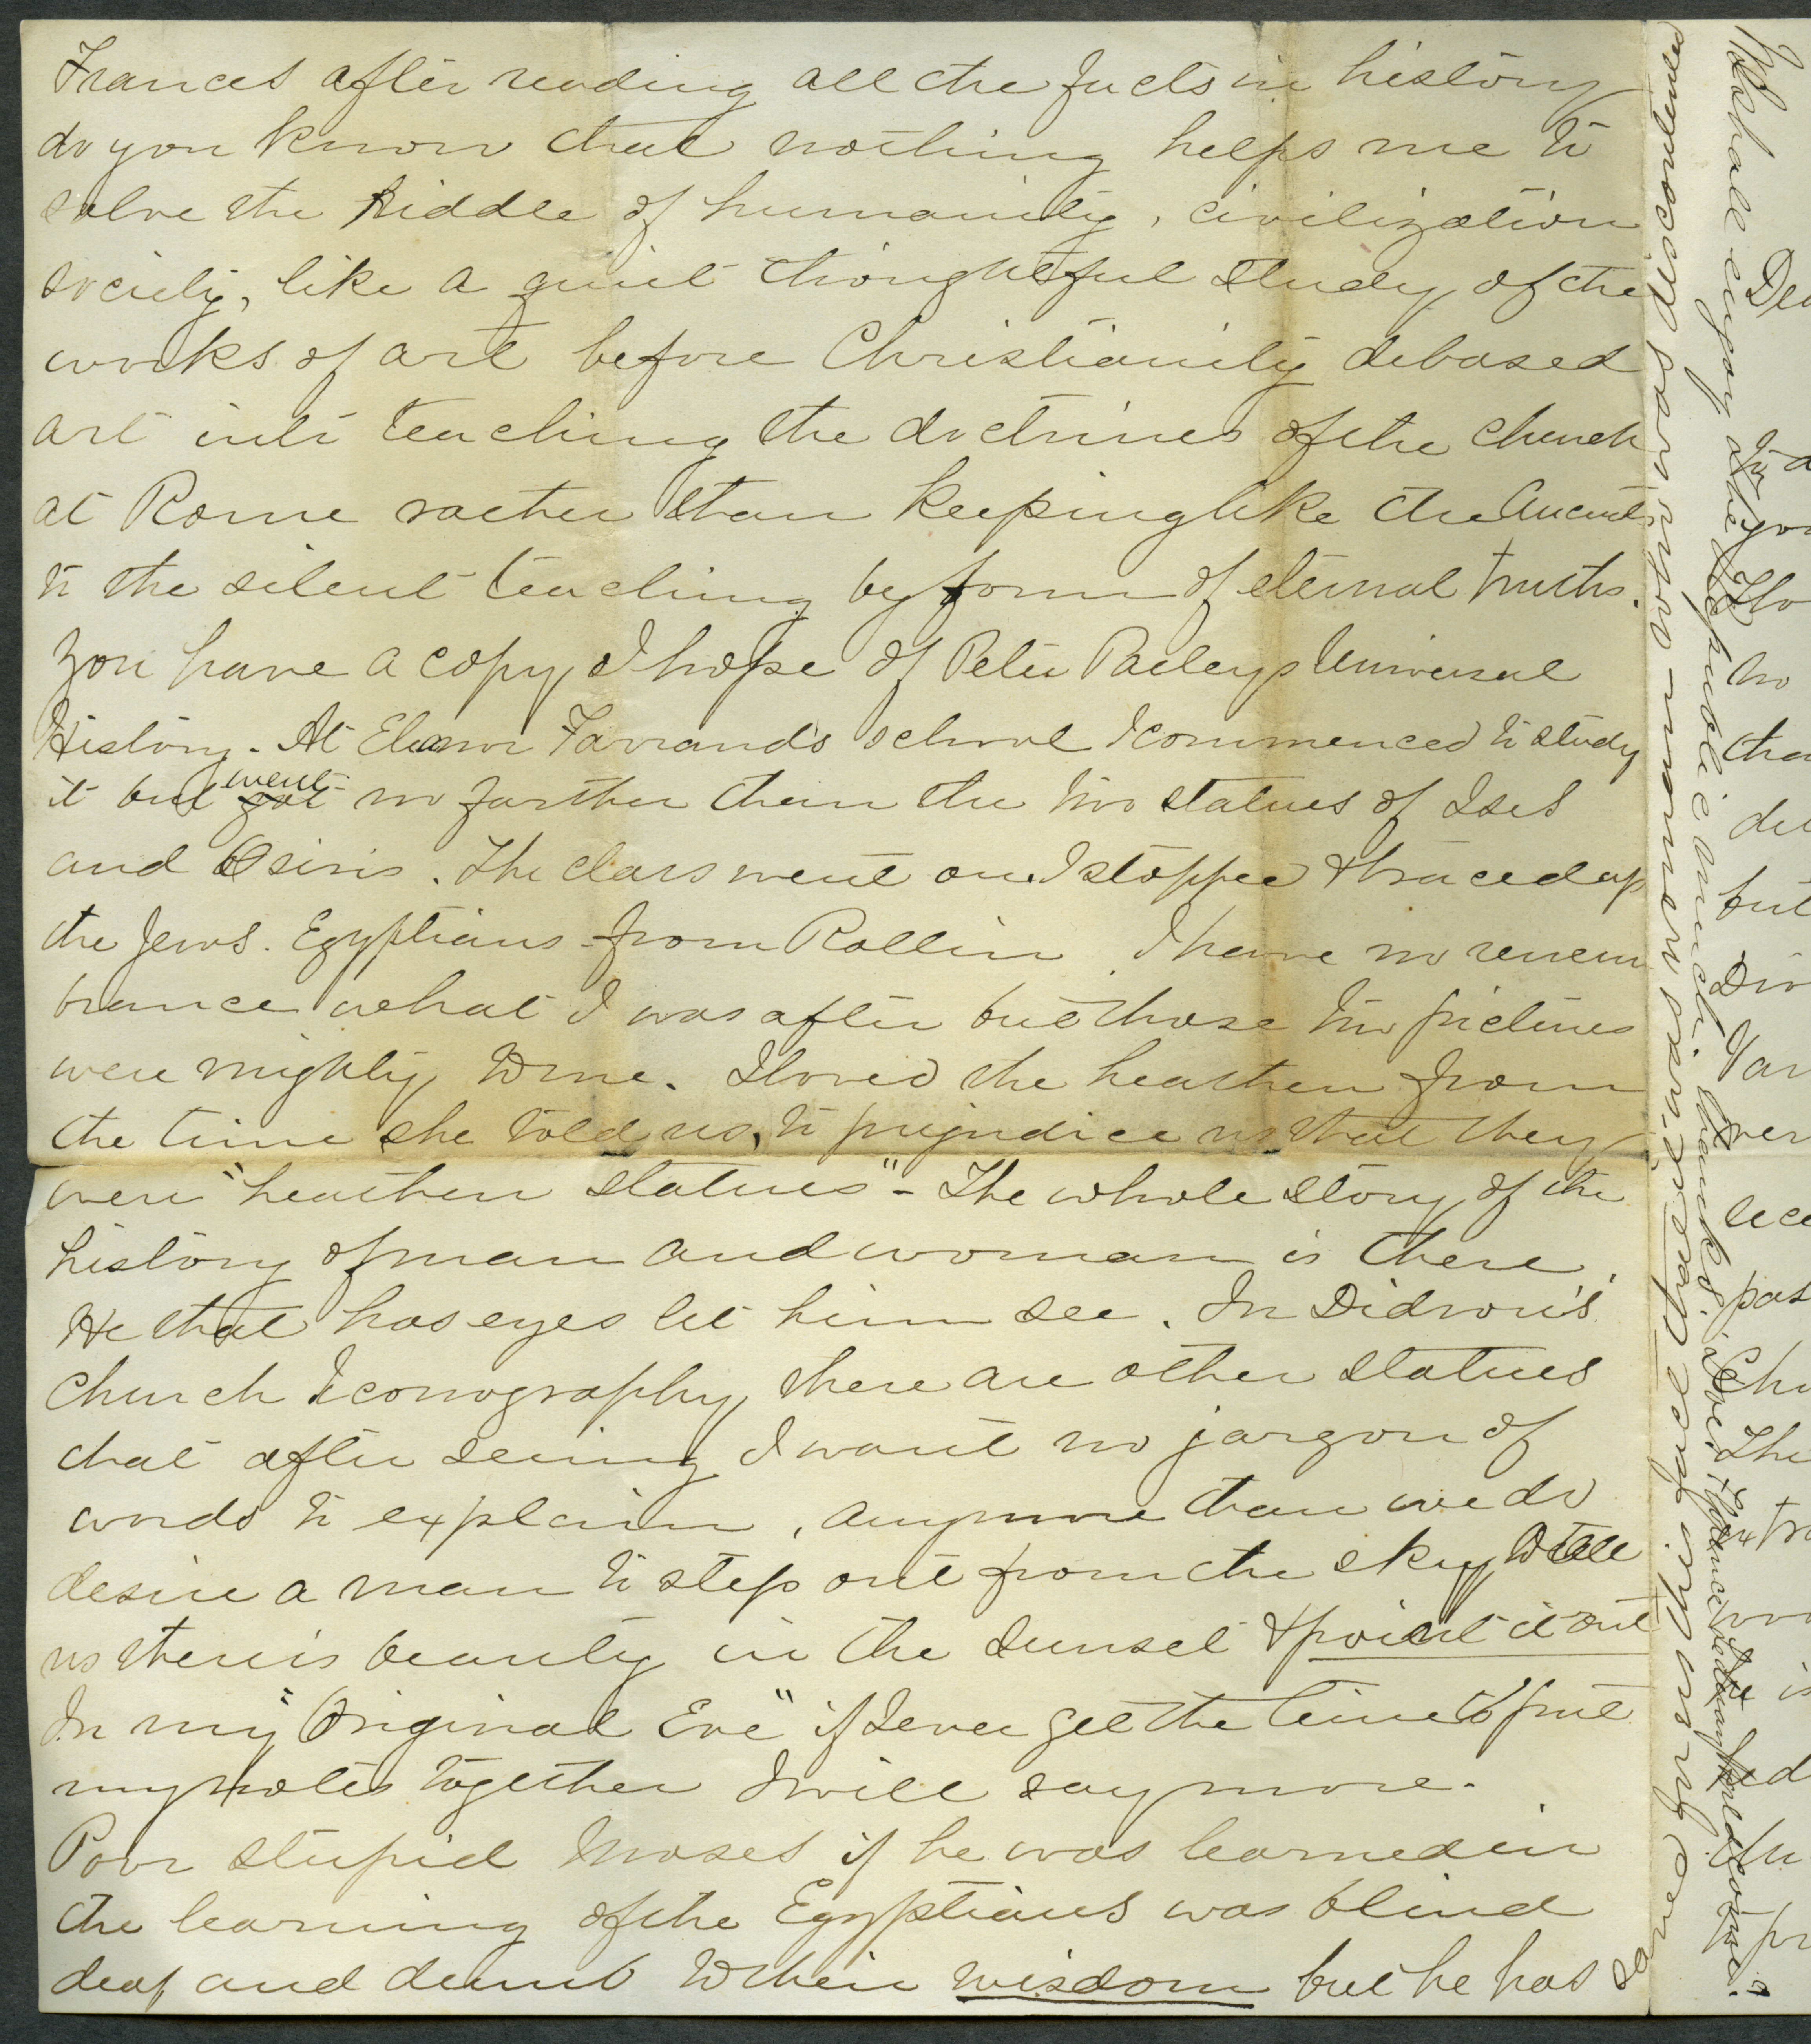 Frances after reading all the facts in history
do you know that nothing helps me to
solve the Riddle of humanity, civilization
society, like a quiet thoughtful study of the
works of art before Christianity debased
art into teaching the doctrines of the church
at Rome rather than keeping like the Ancients
to the silent teaching by form of eternal truths.
You have a copy I hope of Peter Parleys Universal
History. At Eleanor Farrand's school I commenced to study
it but got went no farther than the two statues of Isis
and Osiris. The class went on. I stopped & traced up
the Jews. Egyptians from Rollin. I have no remem
brance what I was after but those two pictures
were mighty to me. I loved the heathen from
the time she told us, to prejudice us that they
were "heathen statues" - The whole story of the
history of man and woman is there.
He that has eyes let him see. In Didron's
Church Iconography there are other statues
that after seeing I want no jargon of
words to explain, anymore than we do
desire a man to step out from the sky to tell
us there is beauty in the sunset & point it out
In my "Original Eve" if I ever get the time to put
my notes together I will say more.
Poor stupid Moses if he was learned in
the learning of the Egyptians was blind
deaf and dumb to their wisdom but he has
served his purpose that is
was discontented
We shall enjoy the Republic much. thanks.
Dea
to a
you
tha
but
Var
ver
pas
Chu
The
tra
is
pr